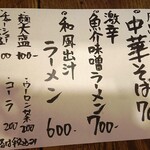 中華そば70
激辛
魚介味噌ラーメン700-
和風出汁
ラーメン 600-
麺大盛 100
ウーロン茶 200
コーラ 200